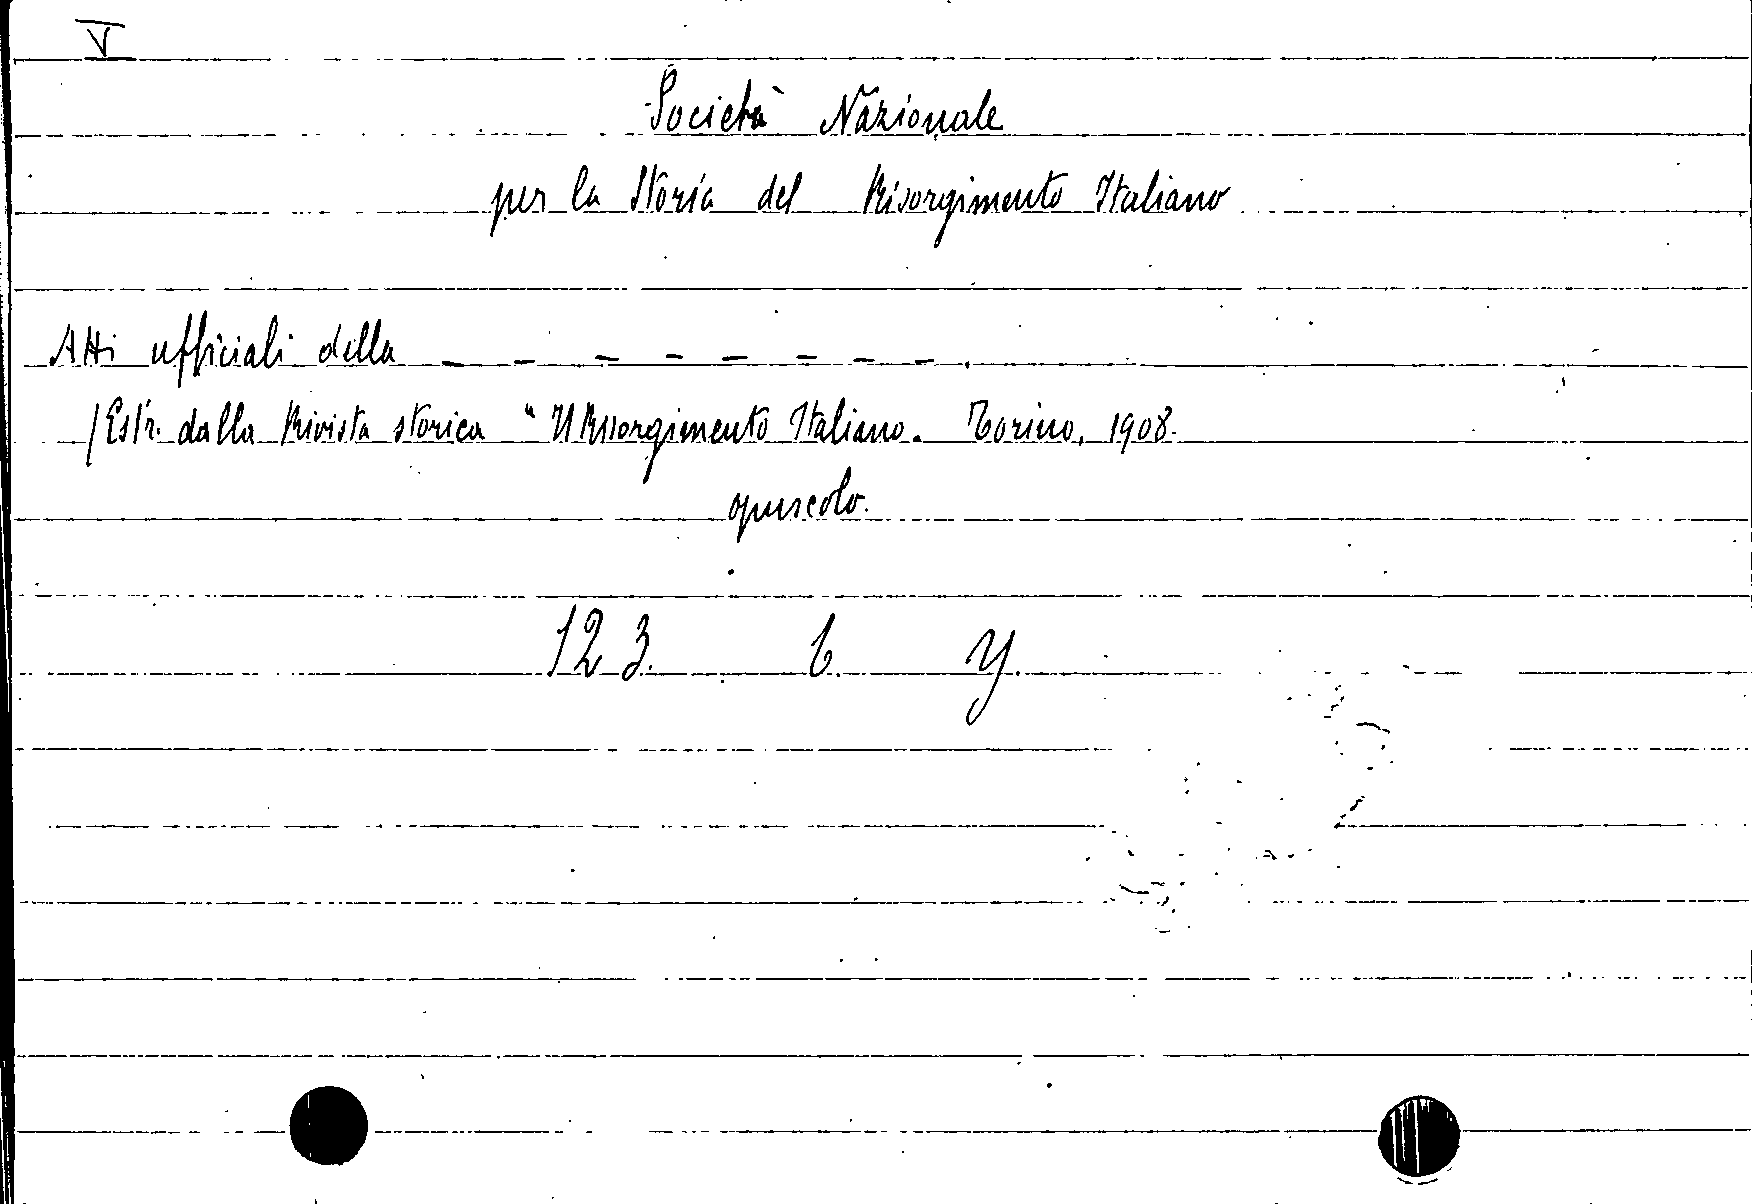 V
Società Nazionale
per la Storia del Risorgimento Italiano
Atti ufficiali della _ _ _ _ _ _ _ _ .
/Estr. dalla Rivista storica "Il Risorgimento Italiano. Torino, 1908.
opuscolo.
123. 6. y.